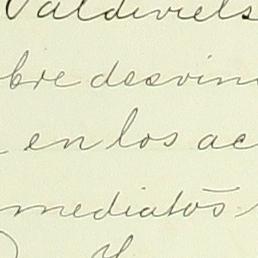 Valdiviels
bre desvin
en los ac
mediatos